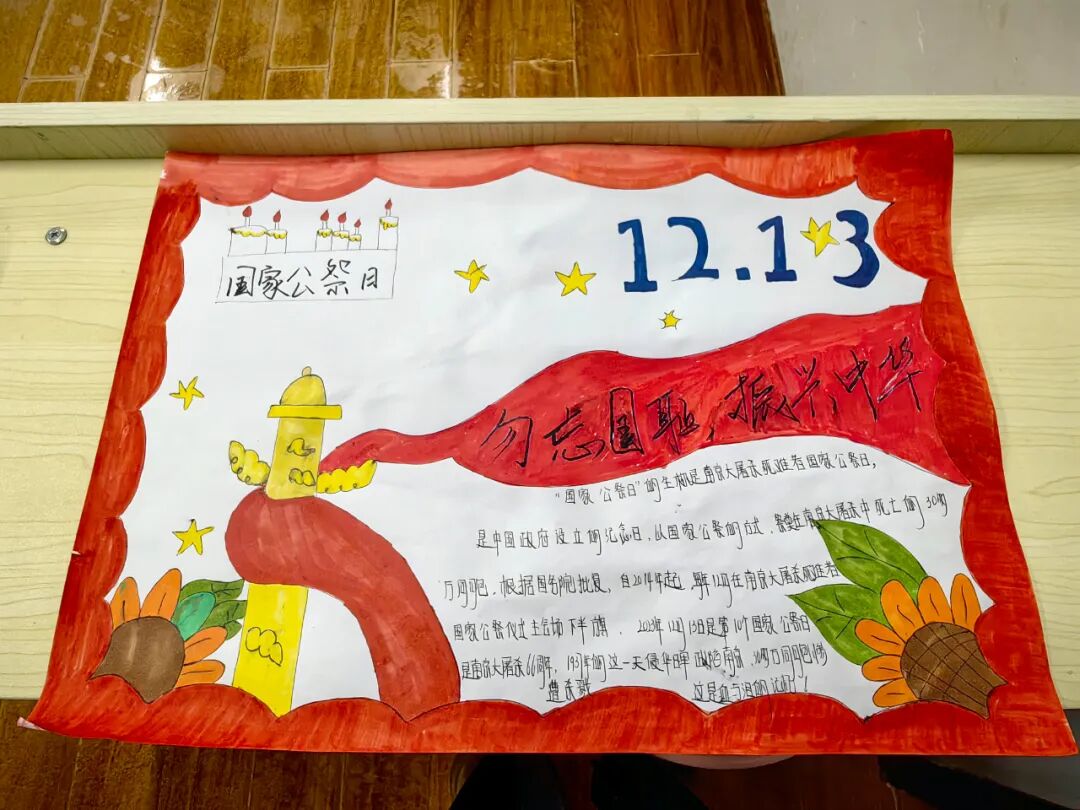 国家公祭日
12.13
勿忘国耻,振兴中华
"国家公祭日"的全称是南京大屠杀死难者国家公祭日,
是中国政府设立的纪念日,以国家公祭的方式,在南京大屠杀中死亡的30多
万同胞。根据国务院批复,自2014年起,每年12月在南京大屠杀死难者
国家公祭仪式主会场下半旗。2023年12月13日是第10个国家公祭日
是南京大屠杀66周年,1937年的这一天侵华日军南京,30多万同胞惨
遭杀戮 这是血与泪的记忆!